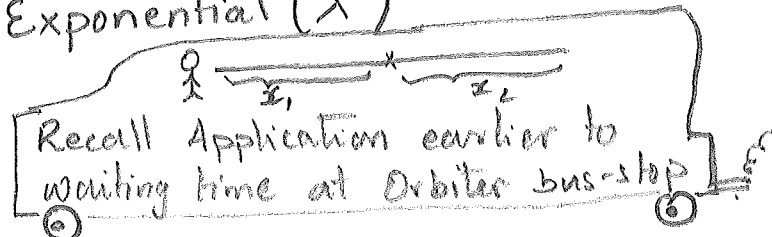 Exponential (λ)
x₁ x₂
Recall Application earlier to
waiting time at Orbiter bus-stop